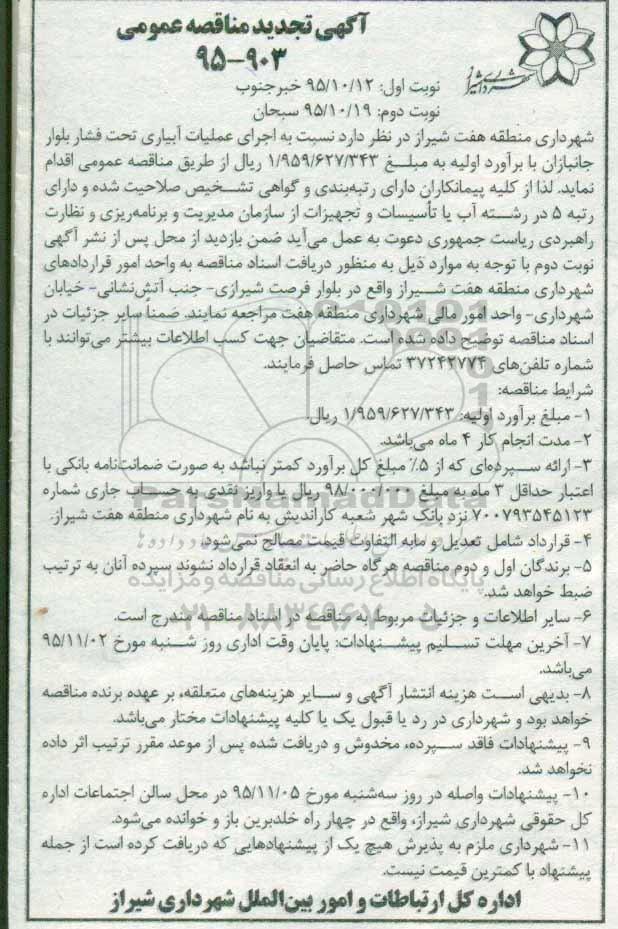 آگهی تجدید مناقصه عمومی
۹۵-۹۰۳
شهرداری شیراز
نوبت اول: ۹۵/۱۰/۱۲ خبرجنوب
نوبت دوم: ۹۵/۱۰/۱۹ سبحان
شهرداری منطقه هفت شیراز در نظر دارد نسبت به اجرای عملیات آبیاری تحت فشار بلوار
جانبازان با برآورد اولیه به مبلغ ۱/۹۵۹/۶۲۷/۳۴۳ ریال از طریق مناقصه عمومی اقدام
نماید. لذا از کلیه پیمانکاران دارای رتبه‌بندی و گواهی تشخیص صلاحیت شده و دارای
رتبه ۵ در رشته آب یا تأسیسات و تجهیزات از سازمان مدیریت و برنامه‌ریزی و نظارت
راهبردی ریاست جمهوری دعوت به عمل می‌آید ضمن بازدید از محل پس از نشر آگهی
نوبت دوم با توجه به موارد ذیل به منظور دریافت اسناد مناقصه به واحد امور قراردادهای
شهرداری منطقه هفت شیراز واقع در بلوار فرصت شیرازی- جنب آتش‌نشانی- خیابان
شهرداری- واحد امور مالی شهرداری منطقه هفت مراجعه نمایند. ضمناً سایر جزئیات در
اسناد مناقصه توضیح داده شده است. متقاضیان جهت کسب اطلاعات بیشتر می‌توانند با
شماره تلفن‌های ۳۷۲۴۲۷۷۴ تماس حاصل فرمایند.
شرایط مناقصه:
۱- مبلغ برآورد اولیه: ۱/۹۵۹/۶۲۷/۳۴۳ ریال.
۲- مدت انجام کار ۴ ماه می‌باشد.
۳- ارائه سپرده‌ای که از ۵٪ مبلغ کل برآورد کمتر نباشد به صورت ضمانت‌نامه بانکی با
اعتبار حداقل ۳ ماه به مبلغ ۹۸/۰۰۰/۰۰۰ ریال یا واریز نقدی به حساب جاری شماره
۷۰۰۷۹۳۵۴۵۱۲۳ نزد بانک شهر شعبه کاراندیش به نام شهرداری منطقه هفت شیراز.
۴- قرارداد شامل تعدیل و مابه التفاوت قیمت مصالح نمی‌شود.
۵- برندگان اول و دوم مناقصه هرگاه حاضر به انعقاد قرارداد نشوند سپرده آنان به ترتیب
ضبط خواهد شد.
۶- سایر اطلاعات و جزئیات مربوط به مناقصه در اسناد مناقصه مندرج است.
۷- آخرین مهلت تسلیم پیشنهادات: پایان وقت اداری روز شنبه مورخ ۹۵/۱۱/۰۲
می‌باشد.
۸- بدیهی است هزینه انتشار آگهی و سایر هزینه‌های متعلقه، بر عهده برنده مناقصه
خواهد بود و شهرداری در رد یا قبول یک یا کلیه پیشنهادات مختار می‌باشد.
۹- پیشنهادات فاقد سپرده، مخدوش و دریافت شده پس از موعد مقرر ترتیب اثر داده
نخواهد شد.
۱۰- پیشنهادات واصله در روز سه‌شنبه مورخ ۹۵/۱۱/۰۵ در محل سالن اجتماعات اداره
کل حقوقی شهرداری شیراز، واقع در چهار راه خلدبرین باز و خوانده می‌شود.
۱۱- شهرداری ملزم به پذیرش هیچ یک از پیشنهادهایی که دریافت کرده است از جمله
پیشنهاد با کمترین قیمت نیست.
اداره کل ارتباطات و امور بین‌الملل شهرداری شیراز
ParsNamadData
پایگاه اطلاع رسانی مناقصه و مزایده
۰۲۱-۸۸۳۴۹۶۷۰-۵